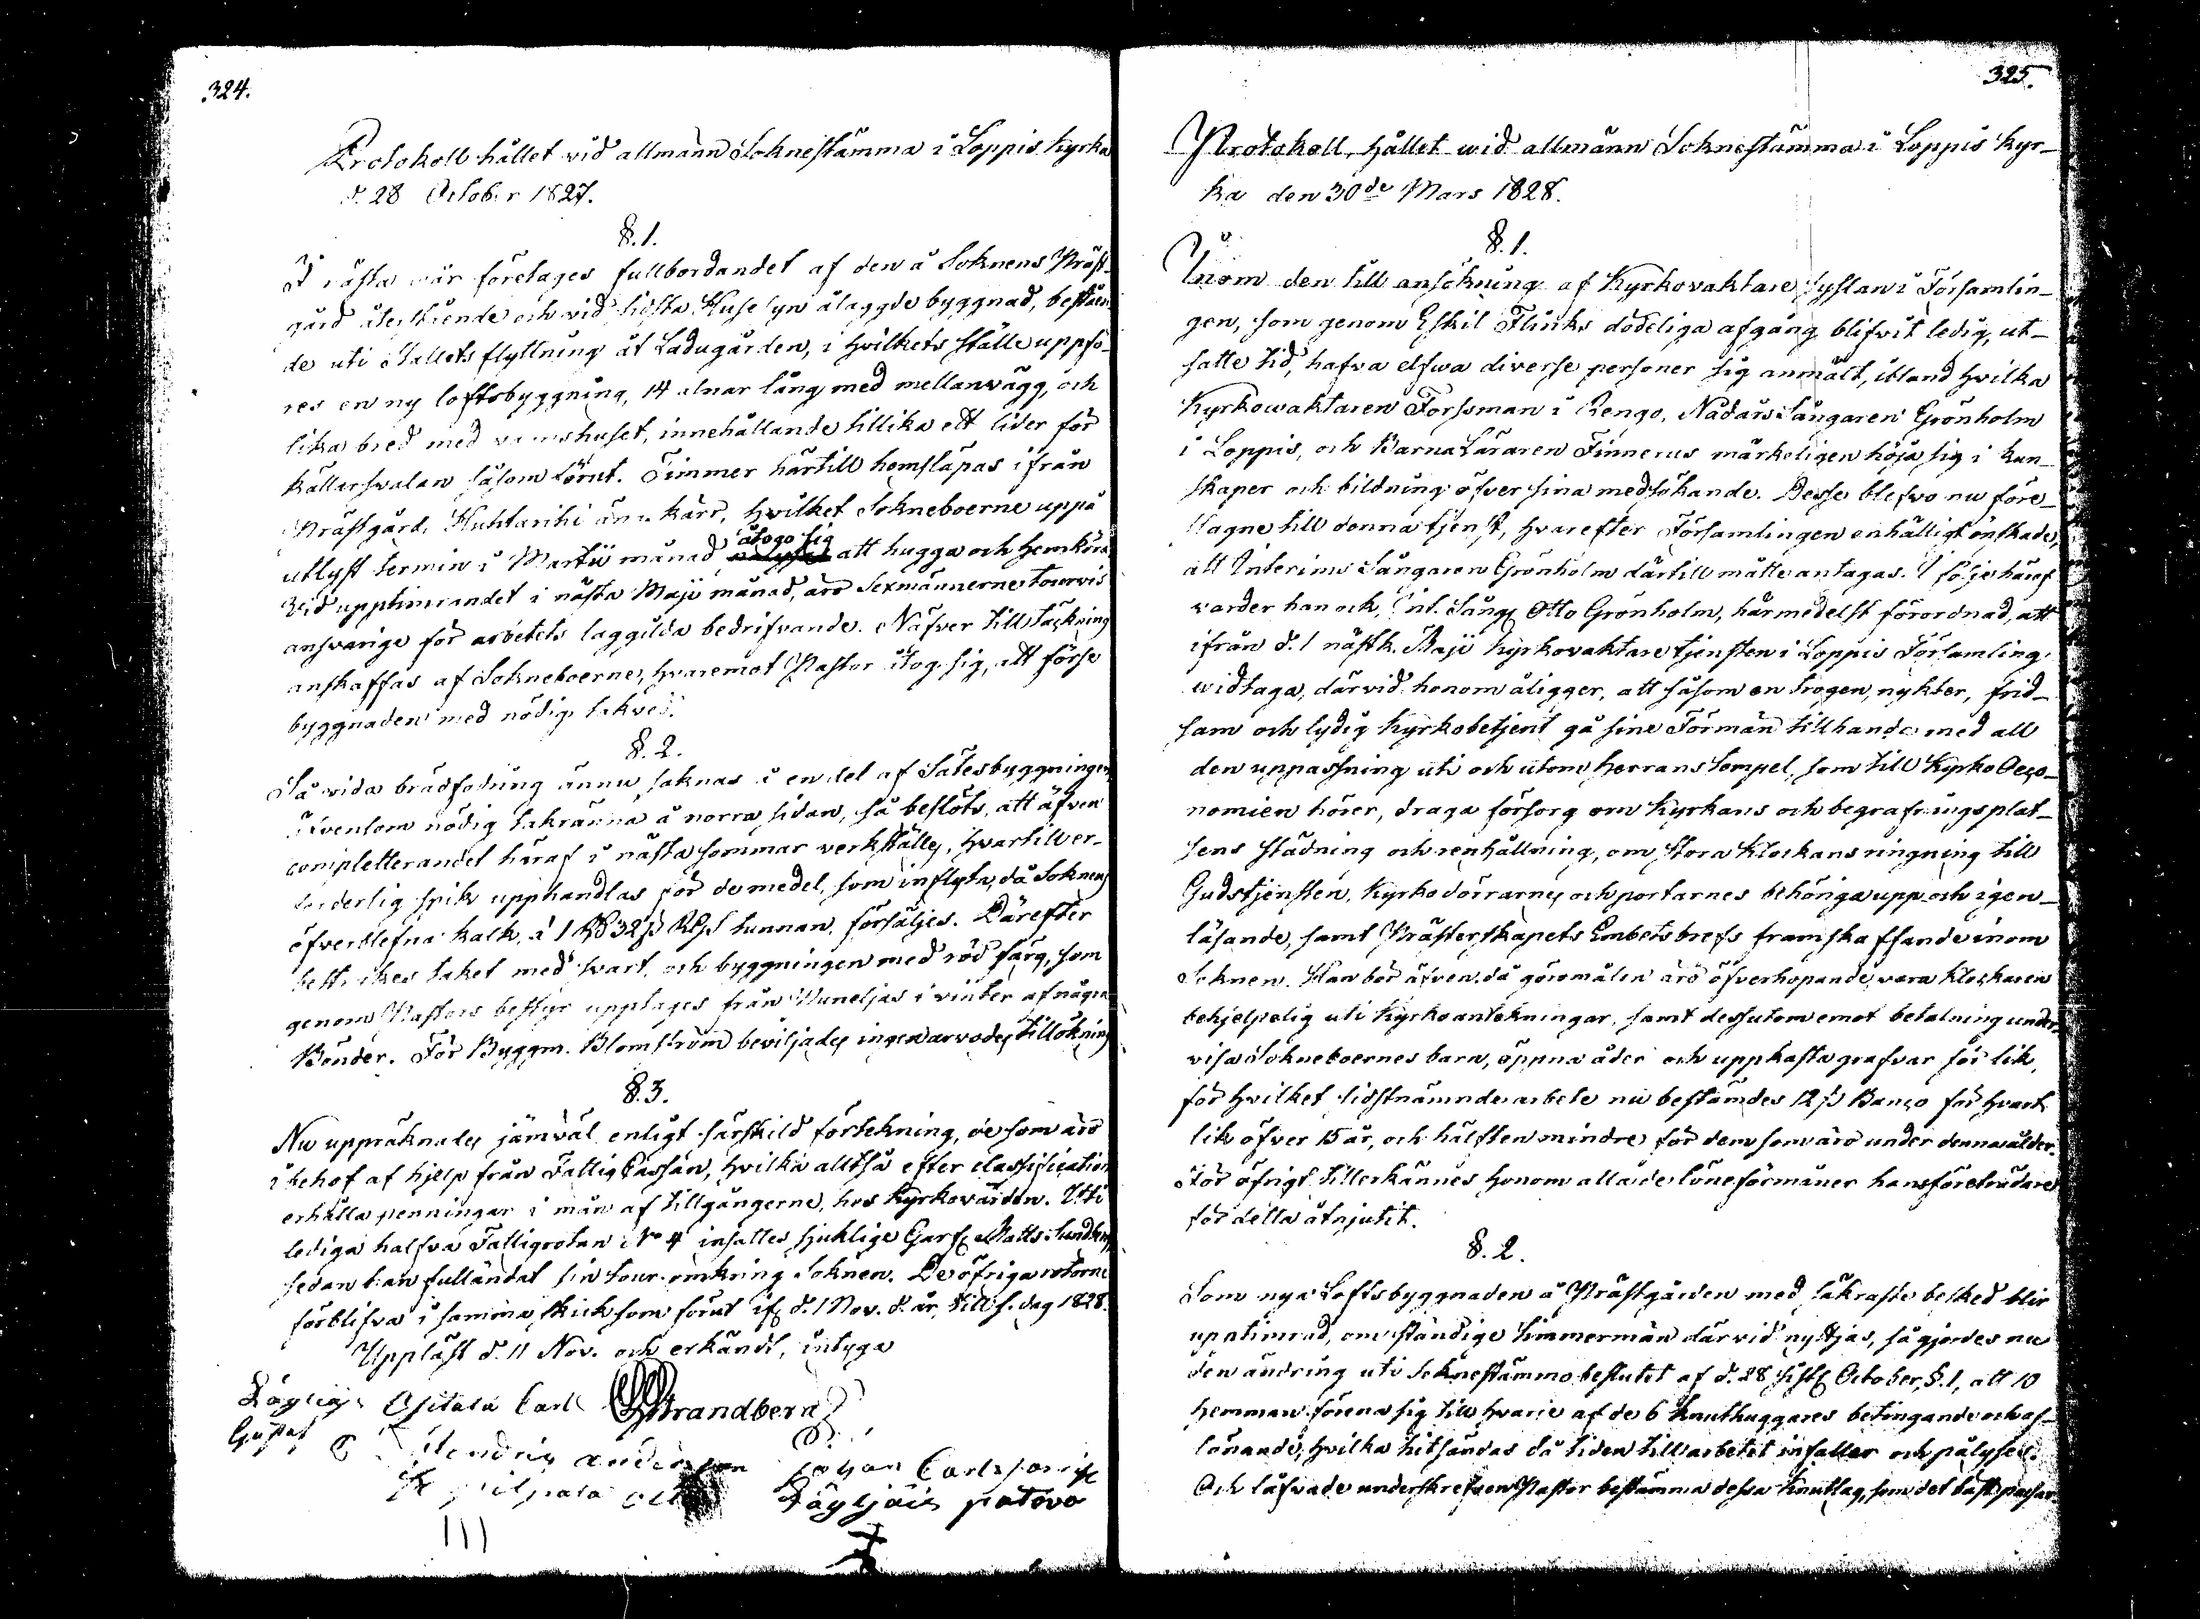 324.
Protokoll hållet vid allmänn Soknestämma i Loppis Kyrka
d. 28 October 1827.
§. 1.
I nästa vår företages fullbordandet af den å Soknens Präst-
gård återstående och vid sidsta Huse syn ålaggde byggnad, beståen-
de uti Stallets flyttning åt Ladugården, i hvilkets ställe uppfö-
res en ny loftsbyggning, 14 alnar lång med mellanvägg, och
lika bred med vamshuset, innehållande tillika ett lider för
källarsvalan såsom förut. Timmer härtill hemsläpas ifrån
Prästgård, Huhtarihi äng kärr, hvilket Sokneboerne uppå
utlyst termin i Martii månad åtogo sig att hugga och hemköra.
Vid upptimrandet i nästa Maji månad, äro Sexmännerne tourvis
ansvarige för arbetets laggilda bedrifvande. Näfver till täckning
anskaffas af Sokneboerne, hvaremot Pastor åtog sig, att förse
byggnaden med nödig takved.
§. 2.
Så vida brädfodring ännu saknas i en del af Sätesbyggningen
Äfvensom nödig takränna å norra sidan, så beslöts, att äfven
completterandet häraf i nästa sommar verkställes, hvartill er-
forderlig spik upphandlas för de medel, som inflyta, då Soknens
öfverblefna kalk, à 1 Rd 32 s. Rgs tunnan, försäljes. Därefter
bestrykes taket med svart, och byggningen med röd färg, som
genom Pastors bestyr upptages från Vuneljas i vinter af några
Bönder. För Byggm. Blomström beviljades ingen arvodes tillökning
§. 3.
Nu uppräknades jämväl enligt särskild förtekning, de som äro
i behof af hjelp från Fattig Cassan, hvilka alltså efter classification
erhålla penningar i mån af tillgångerne, hos Kyrkovärden. Uti
lediga halfva Fattigrotan No 4 insattes sjuklige Garf. Matts Sundberg
sedan han fulländat sin tour omkring Soknen. De öfriga rotorne
förblifva i samma skick som förut ifr. d. 1 Nov. d. år, till s. dag 1828.
Uppläst d. 11 Nov. och erkändt, intyga
Läyliäis Opitula Carl Strandberg
Gustaf
Hendric Andersson Johan Carlsson
pilpala Läyliäis patova
325.
Protokoll, hållet wid allmänn Soknestämma i Loppis Kyr-
ka den 30de Mars 1828.
§. 1.
Inom den till ansökning af Kyrkovaktare syslan i Församlin-
gen, som genom Eskil Flinks dödeliga afgång blifvit ledig, ut-
satte tid, hafva elfwa diverse personer sig anmält, ibland hvilka
Kyrkowaktaren Forssman i Rengo, Nådårs Sångaren Grönholm
i Loppis, och BarnaLäraren Finnerus märkeligen höja sig i kun-
skaper och bildning öfver sina medsökande. Desse blefvo nu före-
slagne till denna tjenst, hvarefter Församlingen enhälligt önskade,
att Interims Sångaren Grönholm därtill måtte antagas. I följe häraf
varder han ock, Int. Sång. Otto Grönholm, härmedelst förordnad, att
ifrån d. 1 nästk. Maji Kyrkovaktare tjensten i Loppis Församling
widtaga, därvid honom åligger, att såsom en trogen, nykter, frid-
sam och lydig Kyrkobetjent gå sine Förmän tillhanda med all
den uppassning uti och utom Herrans tempel, som till Kyrko Oeco-
nomien hörer, draga försorg om Kyrkans och begrafningsplat-
sens städning och renhållning, om stora klockans ringning till
Gudstjensten, Kyrkodörrarnes och portarnes behöriga upp och igen-
låsande, samt Prästerskapets Embetsbrefs framskaffande inom
Soknen. Han bör äfven, då göromålen äro öfverhopande, vara klockaren
behjelpelig uti Kyrkoantekningar, samt dessutom emot betalning under-
visa Sokneboernes barn, öppna åder och uppkasta grafvar för lik,
för hvilket sidstnämnde arbete nu bestämdes 12 s. Banco för hvart
lik öfver 15 år, och hälften mindre för dem som äro under denna ålder.
För öfrigt tillerkännes honom alla de löneförmåner hans företrädare
för detta åtnjutit.
§. 2.
Som nya Loftsbyggnaden å Prästgården med säkraste besked blir
upptimrad, om ständige timmermän därvid nyttjas, så gjordes nu
den ändring uti Soknestämmo beslutet af d. 28 sistl. October, §. 1, att 10
hemman förena sig till hvarje af de 6 knuthuggares betingande och af-
lönande, hvilka hitsändas då tiden till arbetet infaller och pålyses.
Och låfvade underskrefven Pastor bestämma dessa knutlag, som det bäst passar